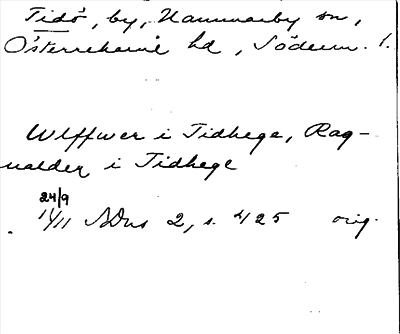 Tidö, by, Hammarby sn,
Österrekarne hd, Söderm. l.
Wlffwer i Tidhega, Rag-
ualder i Tidhege
24/9
11/11 ADns 2, s. 425 orig.